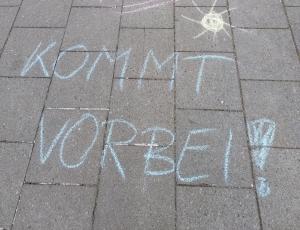 KOMMT
VORBEI!